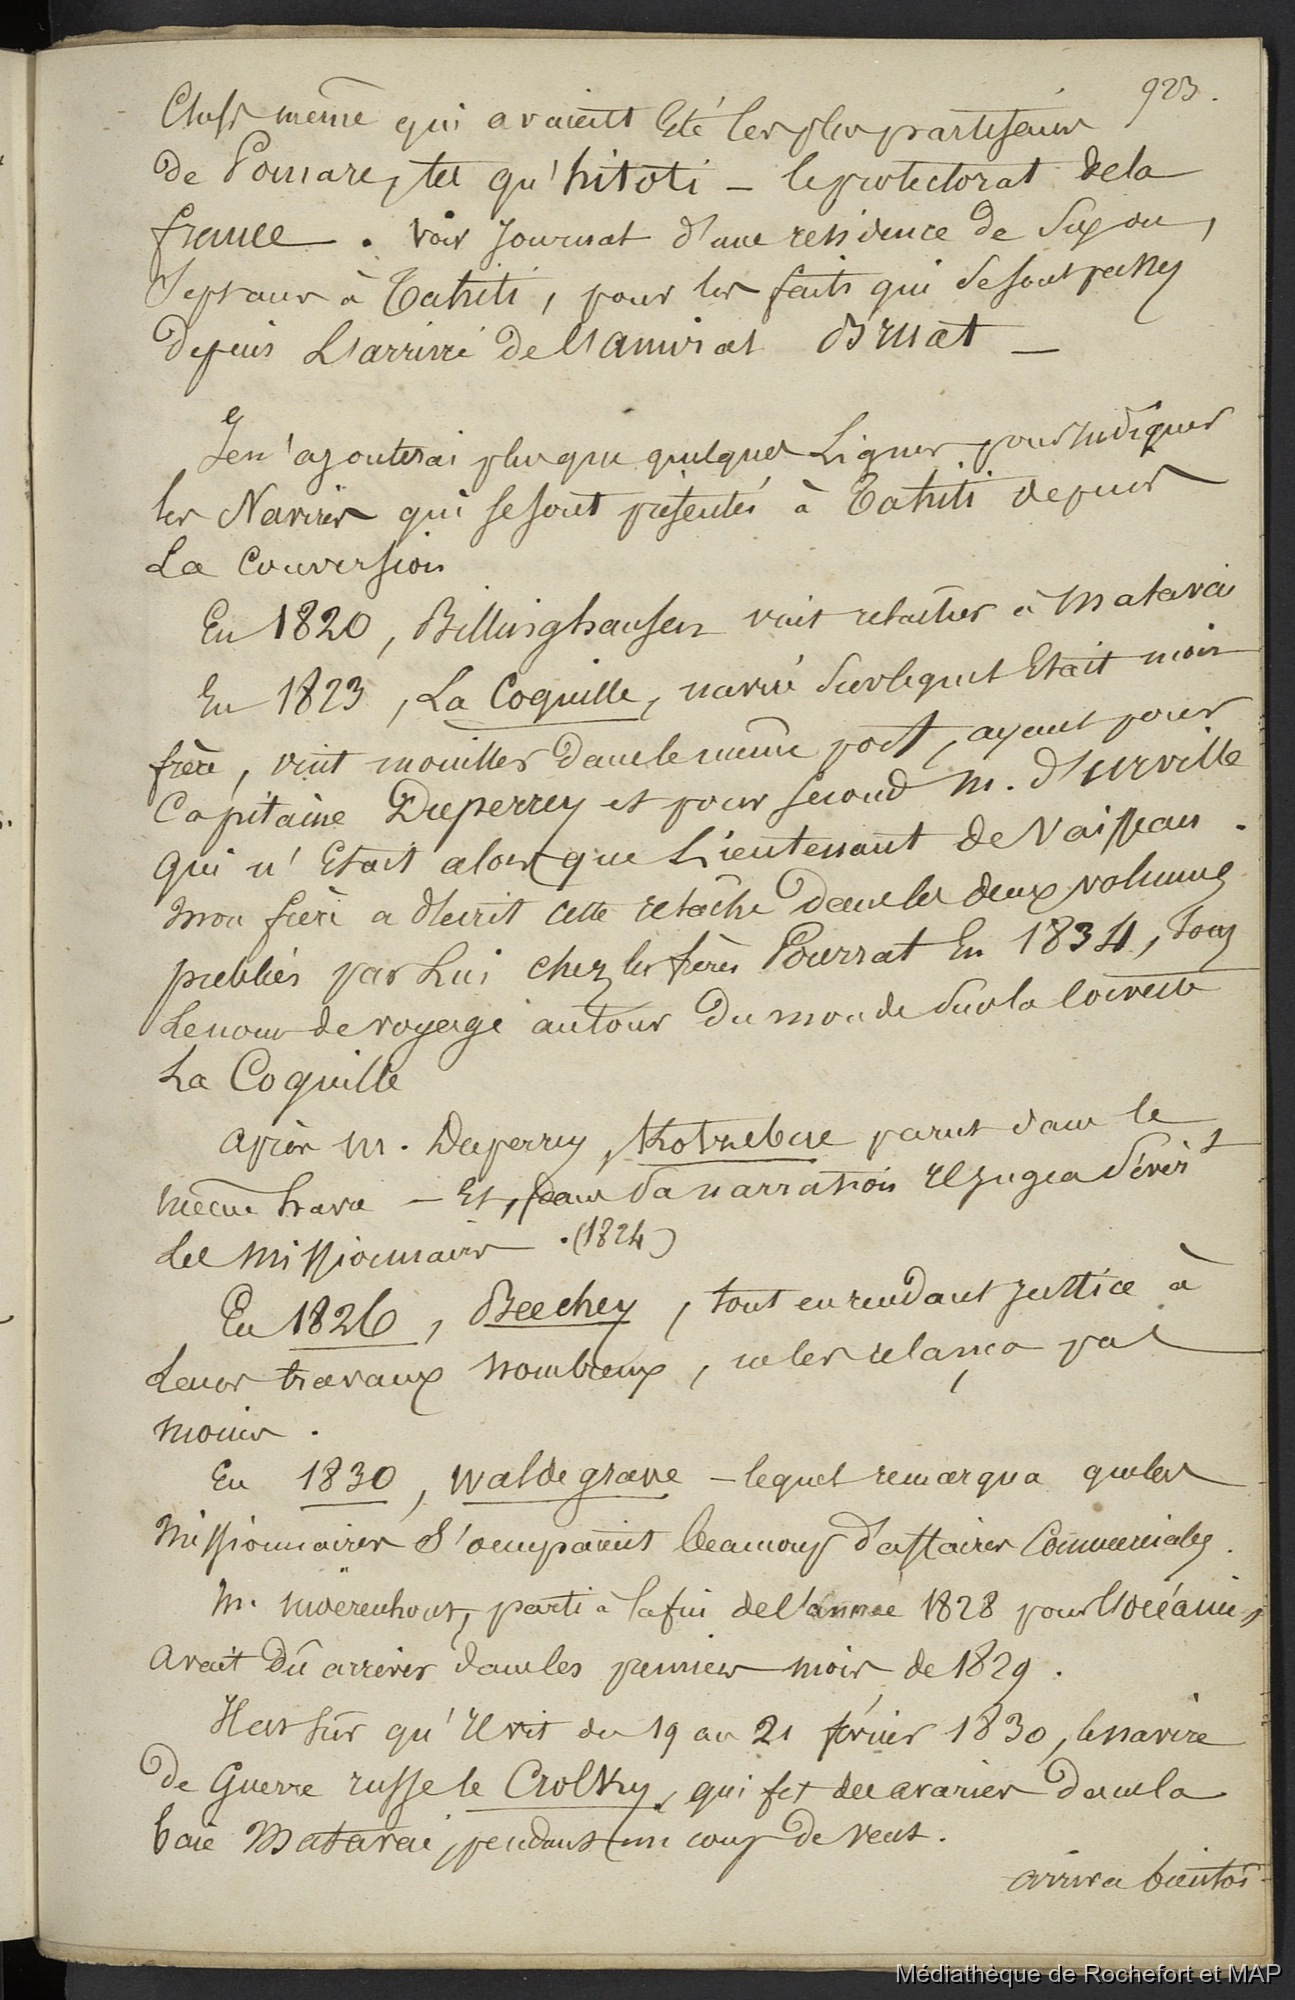 923.
Chefs même qui avaient été les plus partisans
de Pomare, tel qu'hitoti — le protectorat de la
france . Voir Journal d'une residence de six ou,
Sept ans à Tahiti, pour les faits qui se sont passés
depuis L'arrivé de l'amiral Bruat —
Je n'ajouterai plus que quelques Lignes pour indiquer
les Navires qui se sont présentés à Tahiti depuis
La Conversion
En 1820, Billinghausen vint relacher à Matavai
En 1823, La Coquille, navire sur lequel Etait mon
frère, vint mouiller dans le même port, ayant pour
Capitaine Duperrey et pour second M. d'urville
qui n'Etait alors que Lieutenant de Vaisseau .
Mon frère a décrit cette relâche dans les deux volumes
publiés par Lui chez les frères Pourrat En 1834, sous
Le nom de voyage autour du monde sur la Corvette
La Coquille
après M. Duperrey, Kotzebue parut dans le
même havre — Et, dans sa narration Il jugea sévèrt
Les Missionnaires . (1824)
En 1826, Beechey, tout en rendant justice à
Leurs travaux nombreux, ne les relança pas
moins .
En 1830, Waldegrave — lequel remarqua que les
Missionnaires s'occupaient beaucoup d'affaires Commerciales .
M. Moërenhout, parti à la fin de l'année 1828 pour l'océanie,
avait dû arriver dans les premiers mois de 1829 .
Il est sûr qu'Il vit du 19 au 21 février 1830, le navire
de Guerre russe le Crotky, qui fit des avaries dans la
baie Matavai, pendant un coup de vent .
arriva bientôt
Médiathèque de Rochefort et MAP